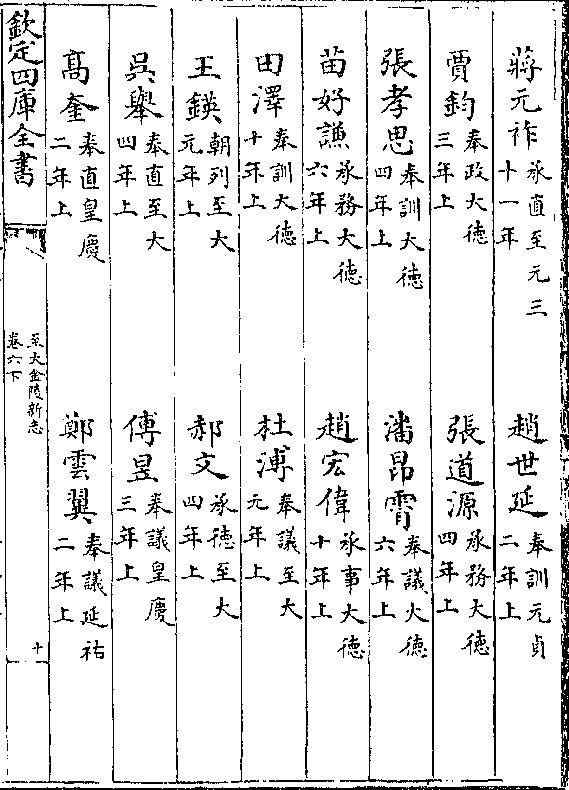 蔣元祚 承直至元三十一年 趙世延 奉訓元貞二年上
賈鈞 奉政大徳三年上 張道源 承務大徳四年上
張孝思 奉訓大徳四年上 潘昂霄 奉議大徳六年上
苗好謙 承務大徳六年上 趙宏偉 承事大徳十年上
田澤 奉訓大徳十年上 杜溥 奉議至大元年上
王鍈 朝列至大元年上 郝文 承徳至大四年上
吳舉 奉直至大四年上 傅昱 奉議皇慶三年上
髙奎 奉直皇慶二年上 鄭雲翼 奉議延祐二年上
欽定四庫全書 至大金陵新志卷六下 十